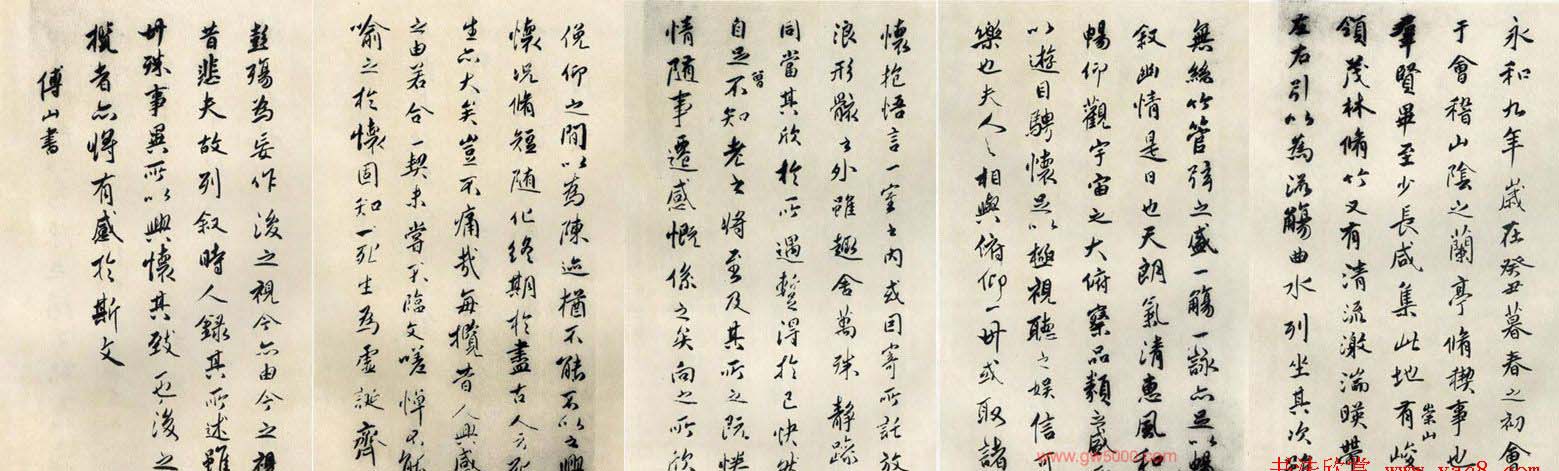 永和九年歲在癸丑暮春之初會
于會稽山陰之蘭亭脩禊事也
羣賢畢至少長咸集此地有崇山峻
領茂林脩竹又有清流激湍暎帶
左右引以為流觴曲水列坐其次雖
無絲竹管弦之盛一觴一詠亦足以暢
叙幽情是日也天朗氣清惠風和
暢仰觀宇宙之大俯察品類之盛
以遊目騁懷足以極視聽之娛信可
樂也夫人之相與俯仰一世或取諸
懷抱悟言一室之內或因寄所託放
浪形骸之外雖趣舍萬殊靜躁
同當其欣於所遇暫得於己快然
自足曾不知老之將至及其所之既惓
情隨事遷感慨係之矣向之所欣
俛仰之間以為陳迹猶不能不以之興
懷況脩短隨化終期於盡古人云死
生亦大矣豈不痛哉每攬昔人興感
之由若合一契未嘗不臨文嗟悼不能
喻之於懷固知一死生為虛誕齊
彭殤為妄作後之視今亦由今之視
昔悲夫故列叙時人錄其所述雖
世殊事異所以興懷其致一也後之
攬者亦將有感於斯文
傅山書
www.gw6000.com
书法欣赏 www.yac8.com